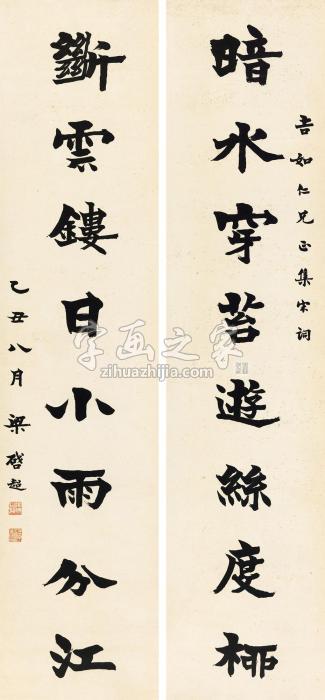 吉如仁兄正集宋詞
暗水穿苔遊絲度柳
斷雲鏤日小雨分江
乙丑八月梁啓超
字画之家
zihuazhijia.com